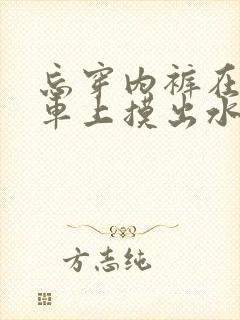 忘穿内裤在
車上摸出水
方志纯